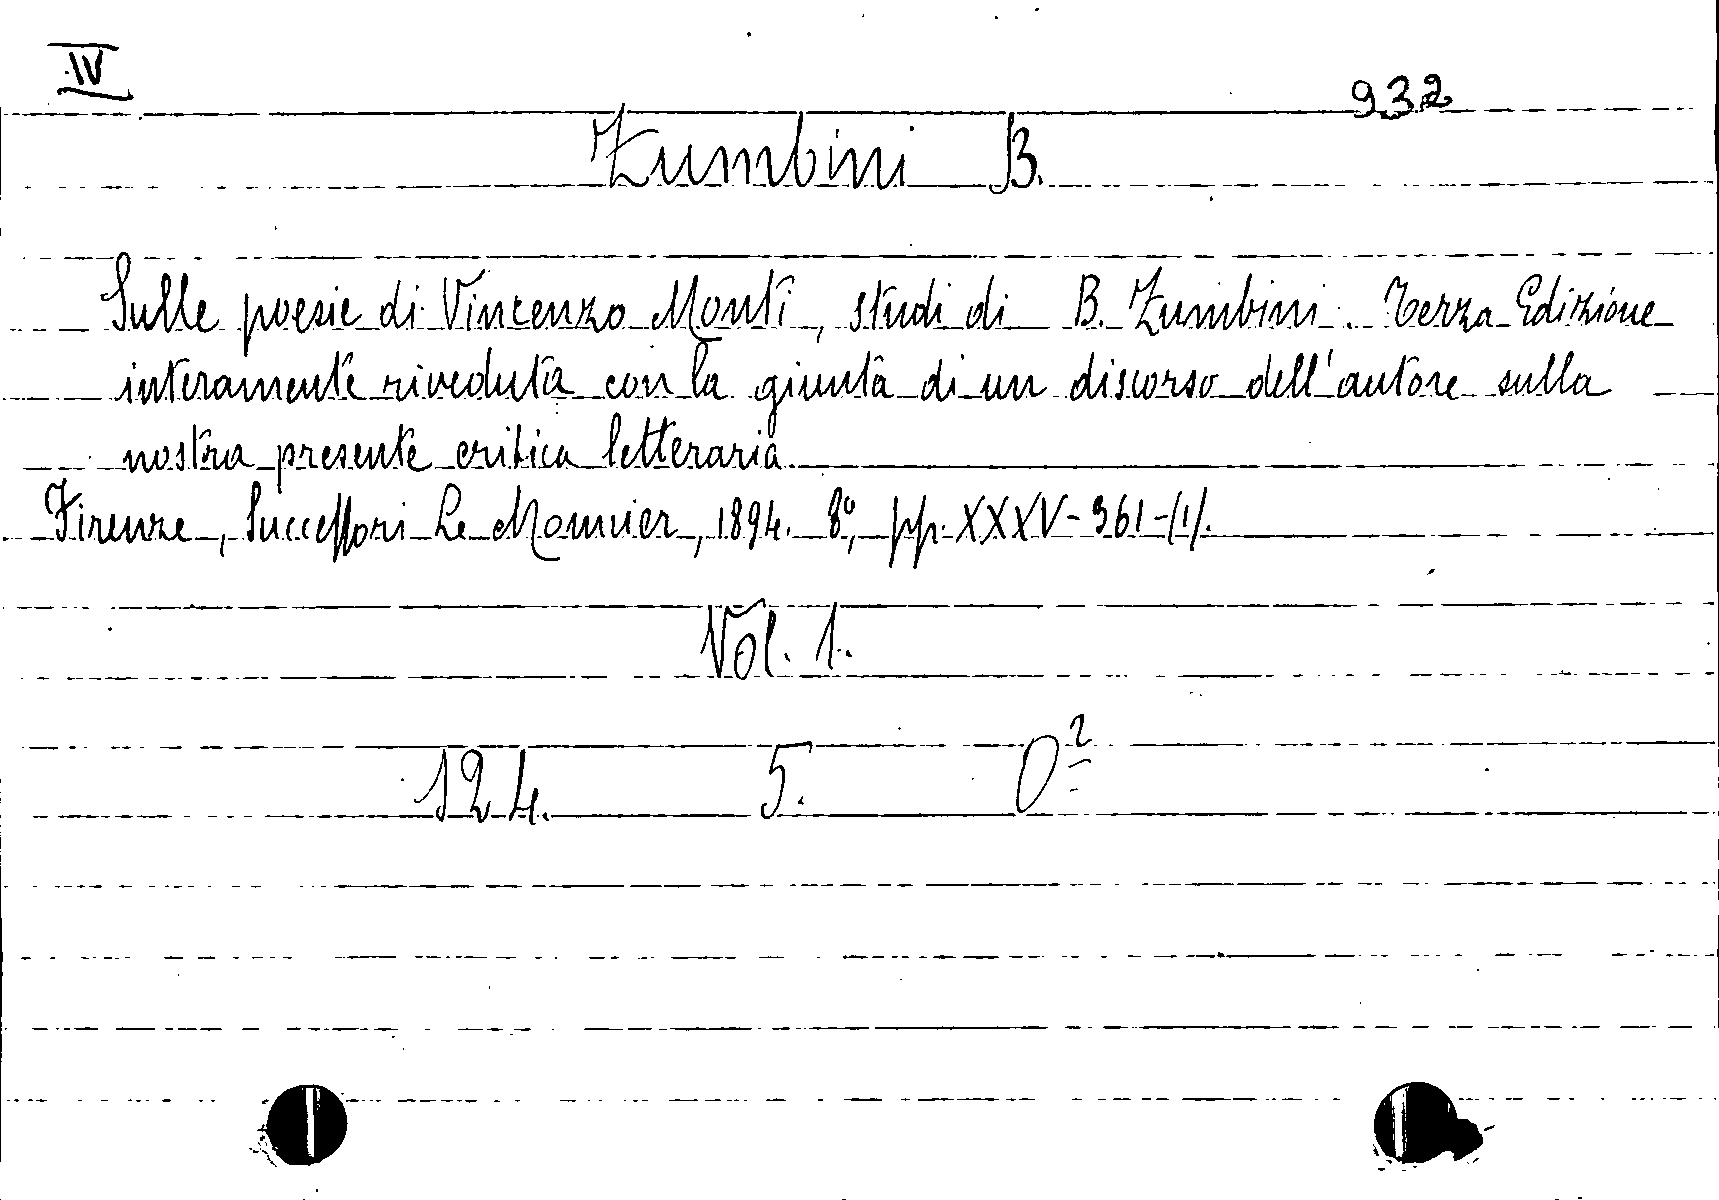 IV
932
Zumbini B.
Sulle poesie di Vincenzo Monti, studi di B. Zumbini. Terza Edizione
interamente riveduta con la giunta di un discorso dell'autore sulla
nostra presente critica letteraria
Firenze, Successori Le Monnier, 1894. 8º, pp. XXXV-361-(1).
Vol. 1.
124. 5. O²